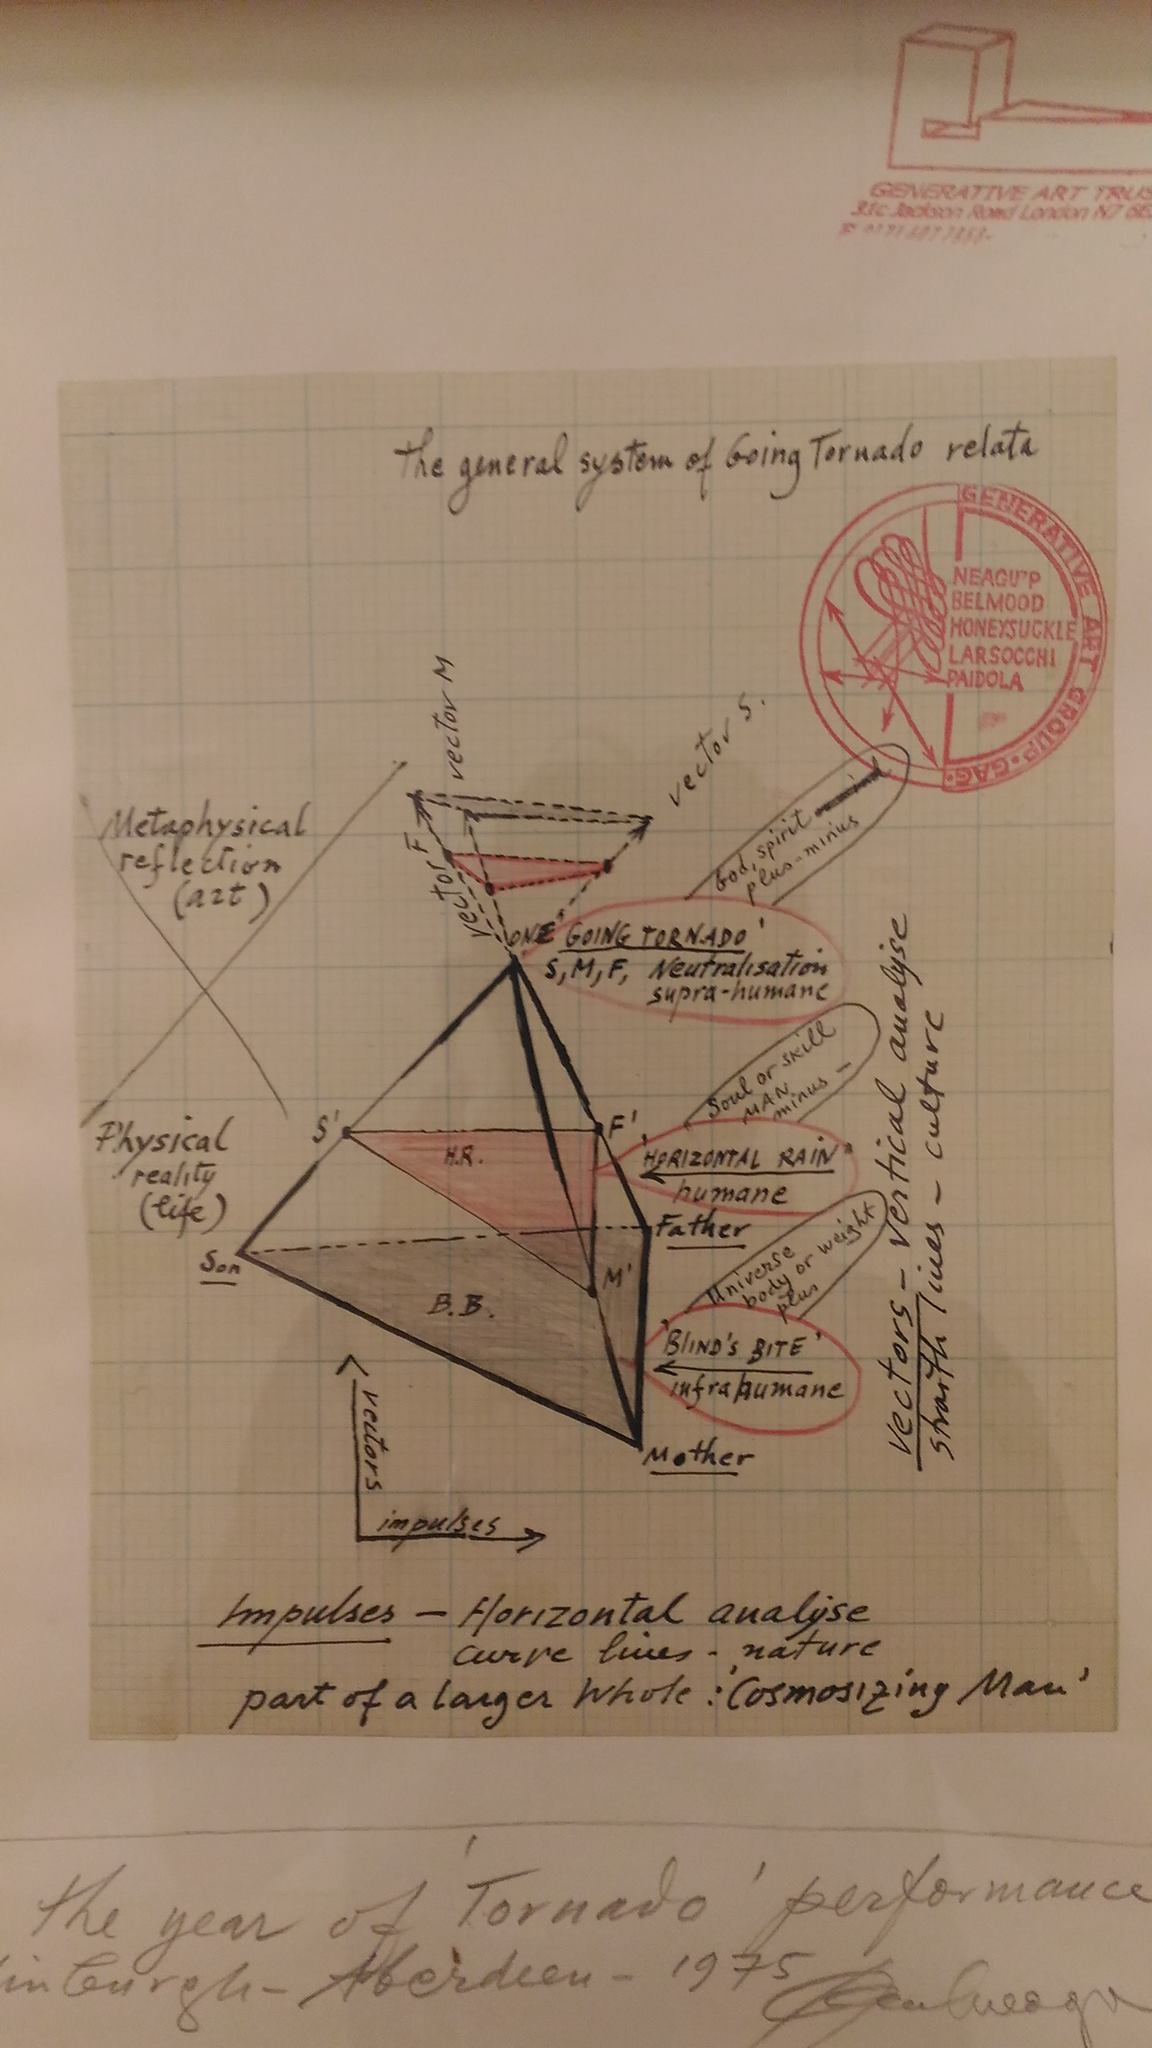 GENERATIVE ART TRUS
31c Jackson Road London N7 6E
The general system of Going Tornado relata
GENERATIVE ART GROUP·GAG·
NEAGU'P
BELMOOD
HONEYSUCKLE
LARSOCCHI
PAIDOLA
vector M
vector S.
vector F
Metaphysical
reflection
(art)
God, spirit
plus-minus
ONE 'GOING TORNADO'
S, M, F, Neutralisation
supra-humane
Soul or skill
MAN
minus –
S'
F'
H.R.
'HORIZONTAL RAIN'
humane
Physical
reality
(life)
Son
Father
M'
B.B.
Universe
body or weight
plus
'BLIND'S BITE'
infrahumane
Mother
vectors – vertical analyse
straith lines – culture
vectors
impulses
Impulses – Horizontal analyse
curve lines - nature
part of a larger whole: 'Cosmosizing Man'
the year of 'Tornado' performance
inburgh – Aberdeen – 1975